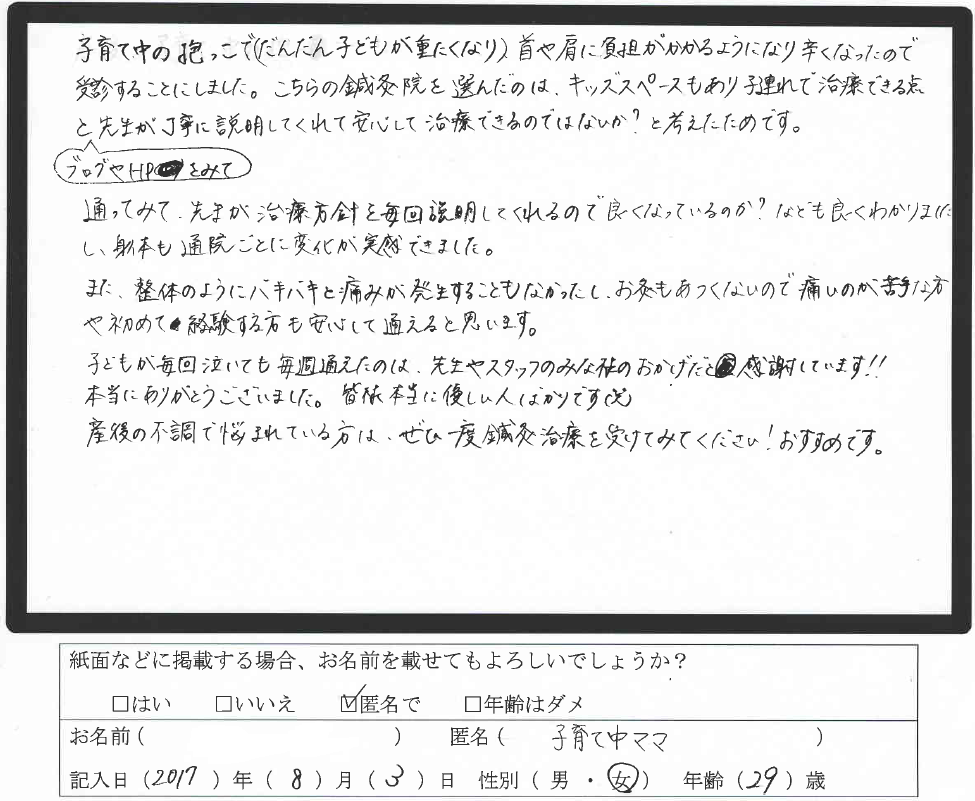 子育て中の抱っこで(だんだん子どもが重たくなり)首や肩に負担がかかるようになり辛くなったので
受診することにしました。こちらの鍼灸院を選んだのは、キッズスペースもあり子連れで治療できる点
と先生が丁寧に説明してくれて安心して治療できるのではないか?と考えたためです。
ブログやHPをみて
通ってみて、先生が治療方針を毎回説明してくれるので良くなっているのか?なども良くわかりました
し、身体も通院ごとに変化が実感できました。
また、整体のようにバキバキと痛みが発生することもなかったし、お灸もあつくないので痛いのが苦手な方
や初めて経験する方も安心して通えると思います。
子どもが毎回泣いても毎週通えたのは、先生やスタッフのみな様のおかげだと感謝しています!!
本当にありがとうございました。皆様本当に優しい人ばかりです
産後の不調で悩まれている方は、ぜひ一度鍼灸治療を受けてみてください!おすすめです。
紙面などに掲載する場合、お名前を載せてもよろしいでしょうか?
□はい □いいえ ☑匿名で □年齢はダメ
お名前( ) 匿名( 子育て中ママ )
記入日(2017)年(8)月(3)日 性別(男・女) 年齢(29)歳